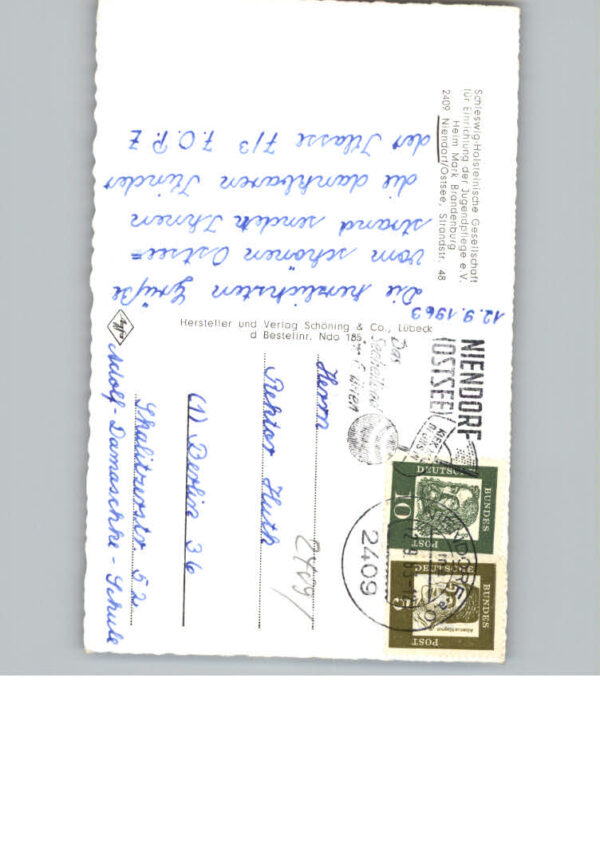 Schleswig-Holsteinische Gesellschaft
für Einrichtung der Jugendpflege e.V.
Heim Mark Brandenburg
2409 Niendorf/Ostsee, Strandstr. 48
12.9.1963
Die herzlichsten Grüße
vom schönen Ostsee=
strand senden Ihnen
die dankbaren Kinder
der Klasse 7/3 7. O.P.Z
Hersteller und Verlag Schöning & Co., Lübeck
Bestellnr. Ndo 185
Agfa
NIENDORF
(OSTSEE)
Das
2409
DEUTSCHE
BUNDES
POST
10
BUNDES
POST
Albertus Magnus
Herrn
Rektor Huth
2409
(1) Berlin 36
Skalitzerstr. 52
Adolf-Damaschke-Schule